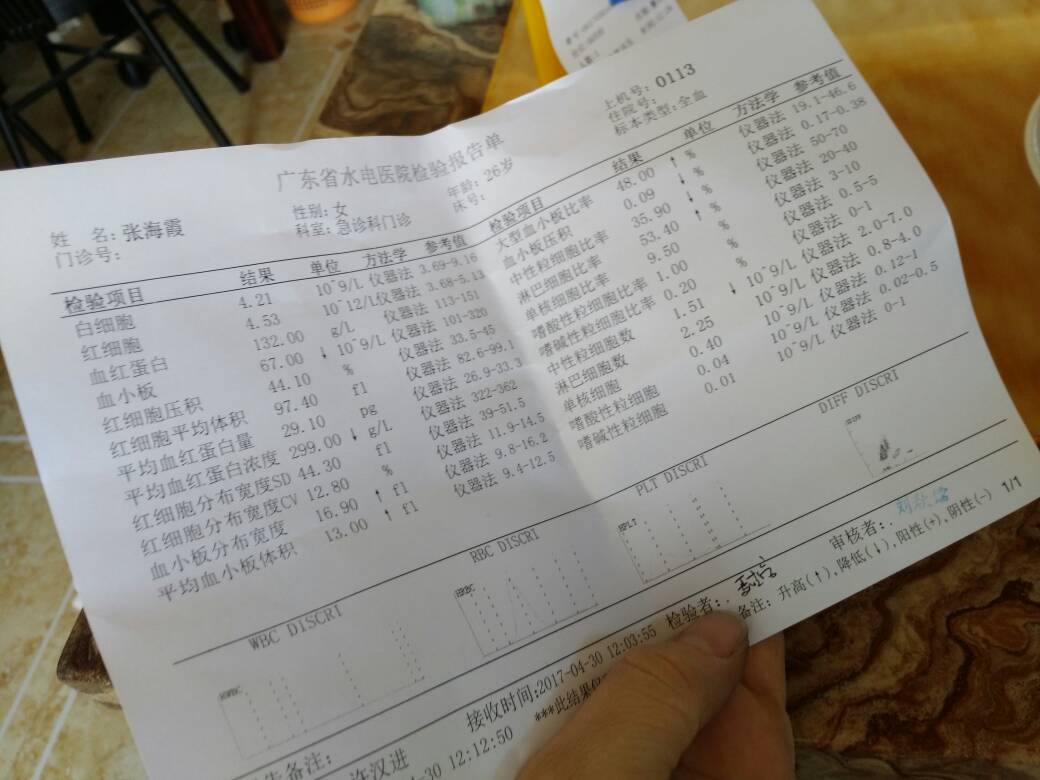 广东省水电医院检验报告单
上机号: 0113
住院号:
标本类型: 全血
姓 名: 张海霞
性别: 女
年龄: 26岁
门诊号:
科室: 急诊科门诊
床号:
检验项目 结果 单位 方法学 参考值
白细胞 4.21 10^9/L 仪器法 3.69-9.16
红细胞 4.53 10^12/L 仪器法 3.68-5.13
血红蛋白 132.00 g/L 仪器法 113-151
血小板 67.00 ↓ 10^9/L 仪器法 101-320
红细胞压积 44.10 % 仪器法 33.5-45
红细胞平均体积 97.40 fl 仪器法 82.6-99.1
平均血红蛋白量 29.10 pg 仪器法 26.9-33.3
平均血红蛋白浓度 299.00 ↓ g/L 仪器法 322-362
红细胞分布宽度SD 44.30 fl 仪器法 39-51.5
红细胞分布宽度CV 12.80 % 仪器法 11.9-14.5
血小板分布宽度 16.90 ↑ fl 仪器法 9.8-16.2
平均血小板体积 13.00 ↑ fl 仪器法 9.4-12.5
检验项目 结果 单位 方法学 参考值
大型血小板比率 48.00 ↑ % 仪器法 19.1-46.6
血小板压积 0.09 ↓ % 仪器法 0.17-0.38
中性粒细胞比率 35.90 ↓ % 仪器法 50-70
淋巴细胞比率 53.40 ↑ % 仪器法 20-40
单核细胞比率 9.50 % 仪器法 3-10
嗜酸性粒细胞比率 1.00 % 仪器法 0.5-5
嗜碱性粒细胞比率 0.20 % 仪器法 0-1
中性粒细胞数 1.51 ↓ 10^9/L 仪器法 2.0-7.0
淋巴细胞数 2.25 10^9/L 仪器法 0.8-4.0
单核细胞 0.40 10^9/L 仪器法 0.12-1
嗜酸性粒细胞 0.04 10^9/L 仪器法 0.02-0.5
嗜碱性粒细胞 0.01 10^9/L 仪器法 0-1
WBC DISCRI
RBC DISCRI
PLT DISCRI
DIFF DISCRI
接收时间:2017-04-30 12:03:55
检验者:
审核者:
告备注:
许汉进
-30 12:12:50
***此结果仅
备注: 升高(↑), 降低(↓), 阳性(+), 阴性(-) 1/1